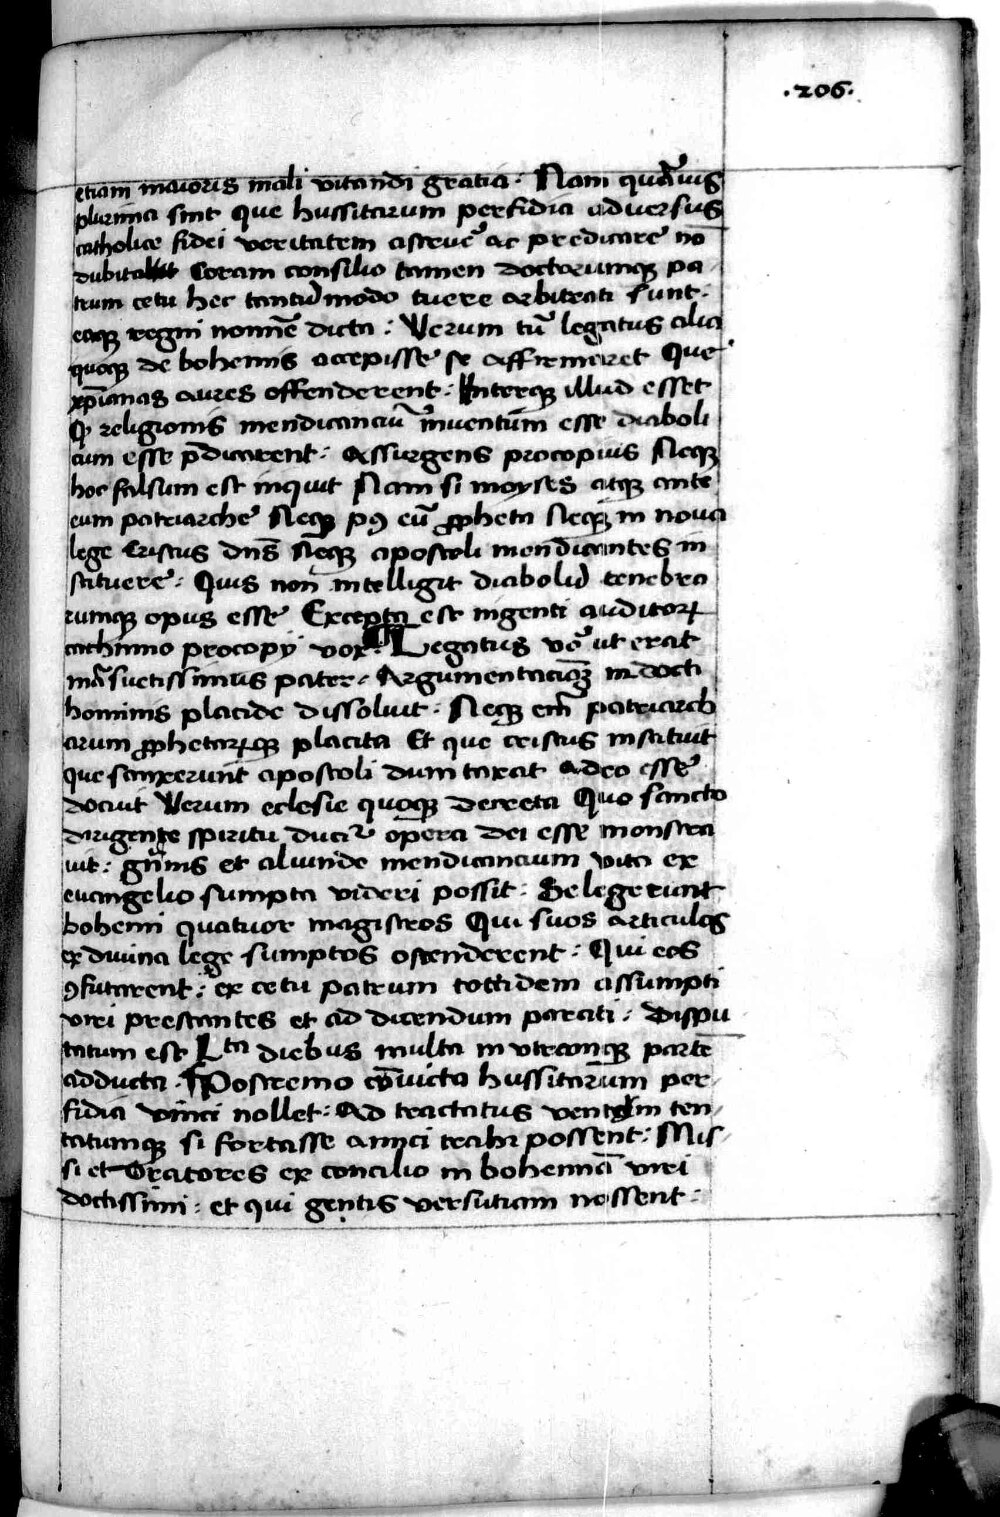 .206.
etiam maioris mali vitandi gratia : Nam quāuis
plurima sint que hussitarum perfidia aduersus
catholice fidei veritatem ac predicare nō
Coram consilio tamen doctorumqꝫ pa-
trum cetu hec tantūmodo tuere arbitrati sunt :
eaqꝫ regni nomīe dicta : Verum tū legatus alia
quoqꝫ de bohemis accepisse se affirmaret Que
xp̄ianas aures offenderent : Interqꝫ illud esset
ꝙ religionis mendicanciū inuentum esse diaboli
cum esse p̄dicarent : Assurgens procopius Neqꝫ
hoc falsum est inquit Nam si moyses atqꝫ ante
eum patriarche Neqꝫ pꝰ eū ꝓpheta Neqꝫ in noua
lege Cristus dn̄s Neqꝫ apostoli mendicantes in
stituere : Quis non intelligit diaboli tenebra
rumqꝫ opus esse Excepta est ingenti auditoꝝ
cachinno procopij vox : Legatus vō ut erat
māsuetissimus pater Argumentacionē indocti
hominis placide dissoluit : Neqꝫ em̄ patriarch
arum ꝓphetaꝝqꝫ placita Et que cristus instituit
que sanxerunt apostoli dum taxat a deo esse
docuit Verum eclesie quoqꝫ decreta Quo sancto
dirigente spiritu ducāt opera dei esse monstra
uit : quāuis et aliunde mendicancium vita ex
euangelio sumpta videri possit : Delegerunt
bohemi quatuor magistros Qui suos articulos
ex diuina lege sumptos ostenderent : Qui eos
ꝯfutarent : ex cetu patrum totidem assumpti
viri prestantes et ad dicendum parati : Dispu
tatum est Lta diebus multa in vtramqꝫ partē
adducta : Postremo cōuicta hussitarum per-
fidia vinci nollet : Ad tractatus ventum ten-
tatumqꝫ si fortasse amici trahi possent : Mis-
si et Oratores ex concilio in bohemiā viri
doctissimi : et qui gentis versutiam nossent :